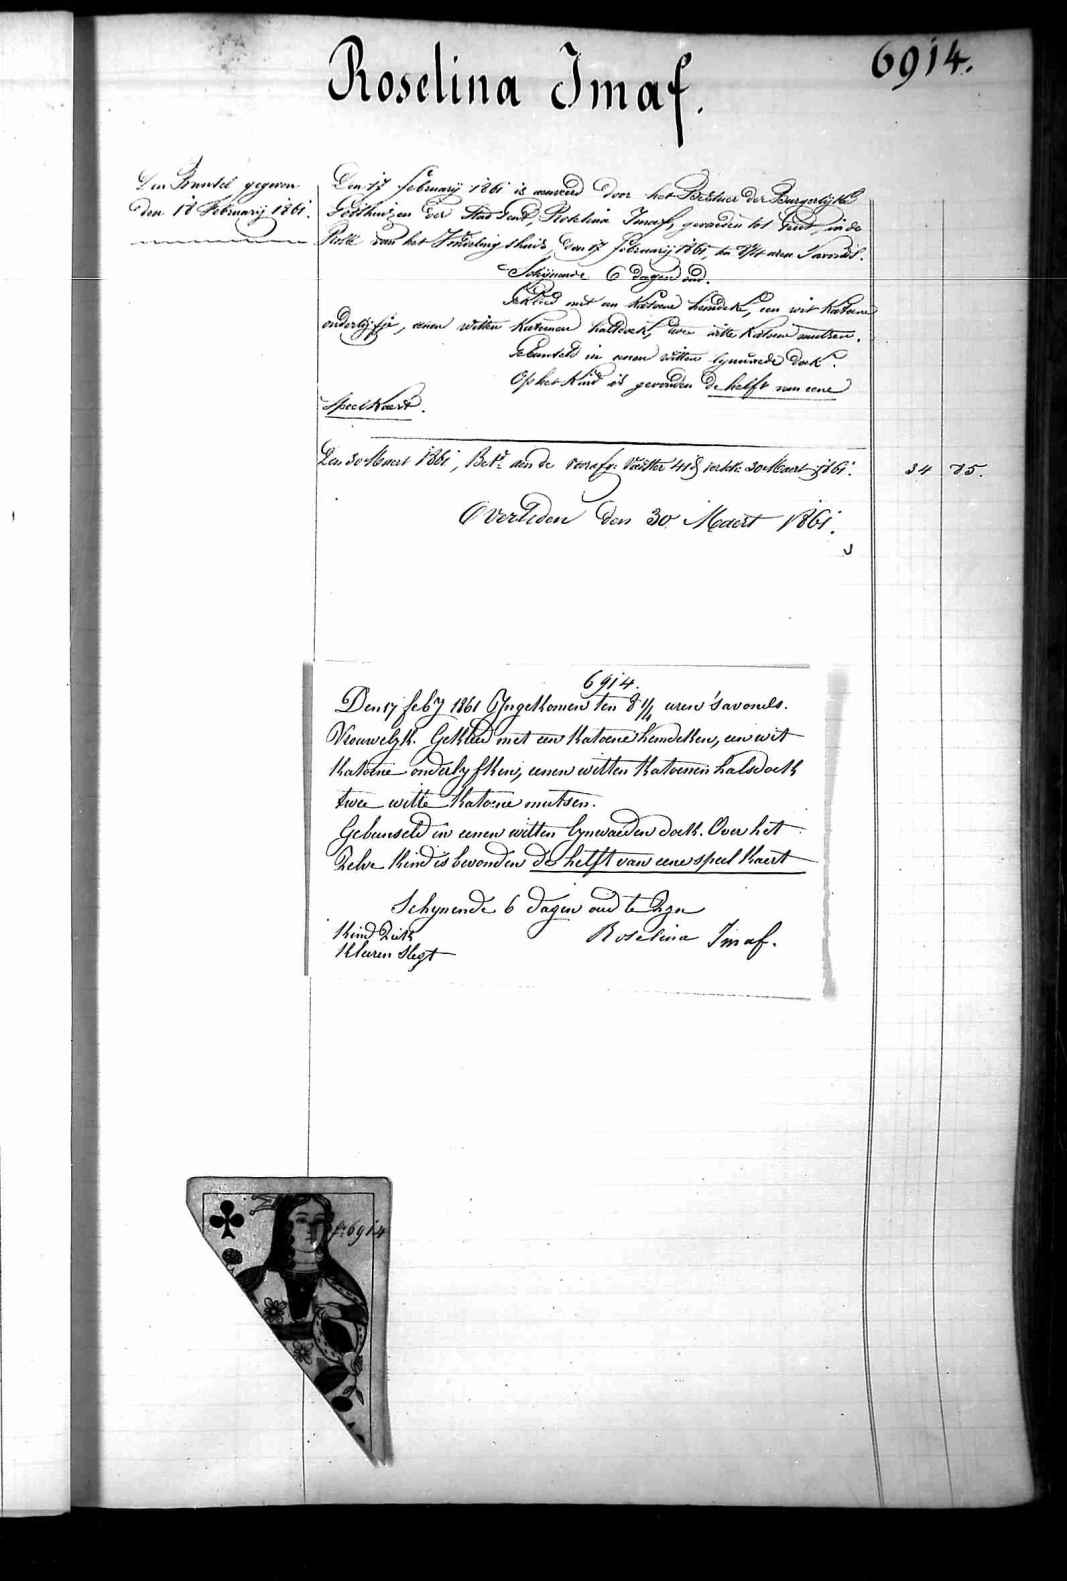 Roselina Imaf.
6914.
Den Bunsel gegeven
den 18 Februarij 1861.
Den 17 februarij 1861 is aenveerd door het Bestier der Burgerlijke
Godshuizen der Stad Gend, Roselina Imaf, gevonden tot Gent, in de
Rolle van het Vindelingshuis, den 17 februarij 1861, ten uren s'avonds.
Schijnende 6 dagen oud.
Gekleed met een katoene hemdeke, een wit katoene
onderlijfje, eenen witten katoenen halsdoek, twee witte katoene mutsen.
Gebunseld in eenen witten lynwaede doek.
Op het kind is gevonden de helft van eene
speelkaert.
Den 30 Maert 1861, Bet. aen de voorsz. 30 Maert 1861.
34 85.
Overleden den 30 Maert 1861.
6914.
Den 17 feby 1861 Ingekomen ten 8 1/4 uren s'avonds.
Vrouwelyk. Gekleed met een katoene hemdeken, een wit
katoene onderlyfken, eenen witten katoenen halsdoek
twee witte katoene mutsen.
Gebunseld in eenen witten lynwaeden doek. Over het
zelve kind is bevonden de helft van eene speel kaert
Schynende 6 dagen oud te zyn
Kind ziek
Roselina Imaf.
kleeren slegt
6914